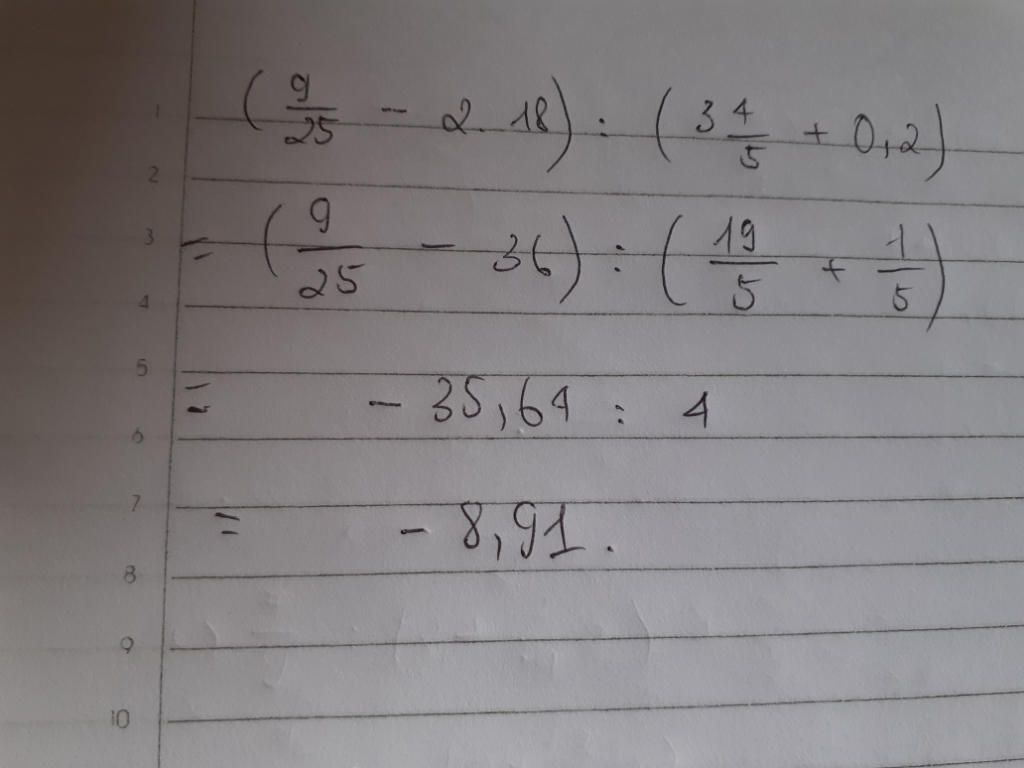 1 (9/25 - 2.18) : (3 4/5 + 0,2)
2
3 = (9/25 - 36) : (19/5 + 1/5)
4
5 = - 35,64 : 4
6
7 = - 8,91.
8
9
10